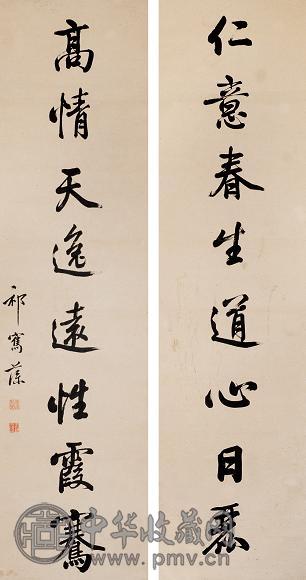 仁意春生道心日麗
髙情天逸遠性霞騫
祁寯藻
中华收藏网
www.pmv.cn